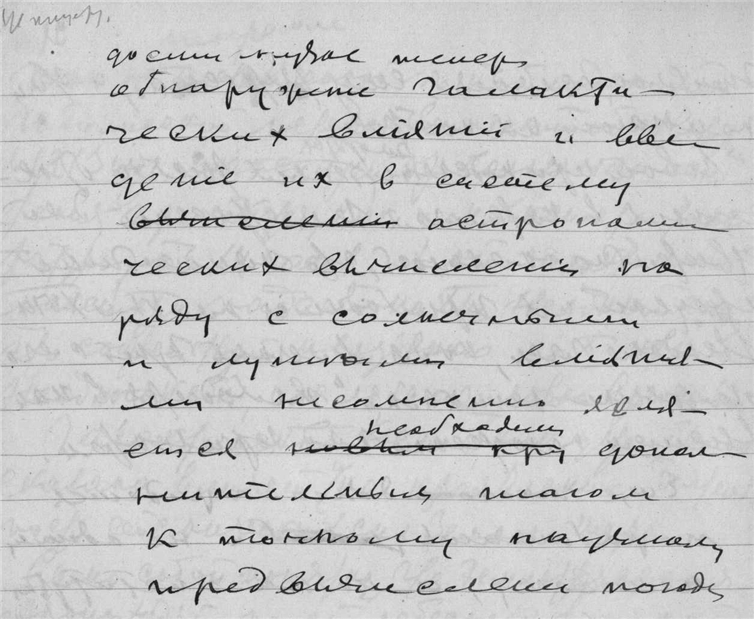 обнаружение галакти-
ческих влияний и вве-
дение их в систему
вычислений астрономи
ческих вычислений на
ряду с солнечными
и лунными влияния-
ми несомненно явля-
ется необходимым допол-
нительным шагом
к точному научному
предвычислению погоды